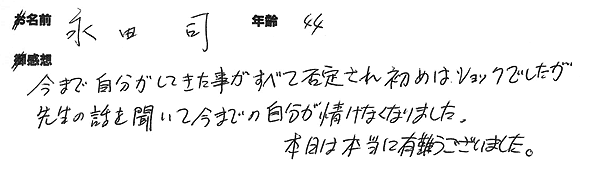 お名前 永田 司 年齢 44
御感想
今まで自分がしてきた事がすべて否定され初めはショックでしたが
先生の話を聞いて今までの自分が情けなくなりました。
本日は本当に有難うございました。